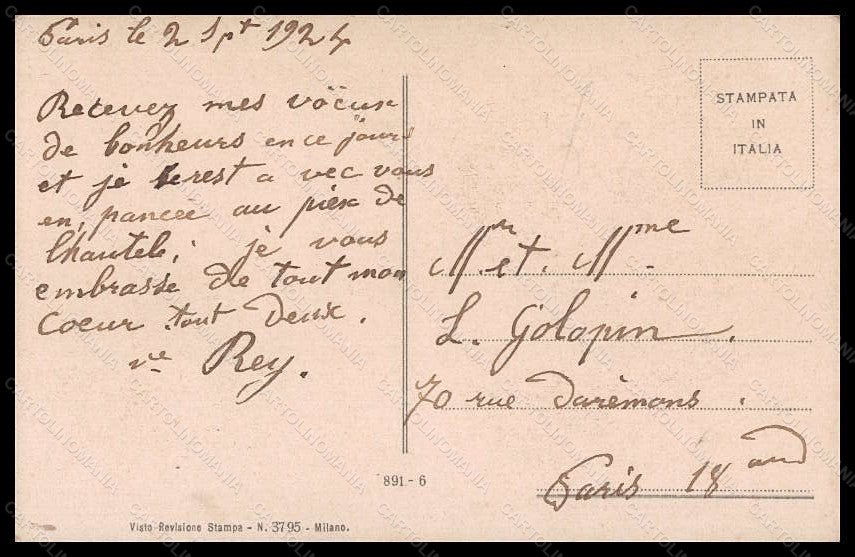 Paris le 2 Spt 1924
Recevez mes vöeux
de bonheurs en ce jours
et je serest a vec vous
en, pancée au piex de
lhautele; je vous
embrasse de tout mon
Coeur tout Deux.
ve Rey.
STAMPATA
IN
ITALIA
Mr et. Mme
L. Golopin.
70 rue Darémons.
Paris 18
891 - 6
Visto Revisione Stampa - N. 3795 - Milano.
CARTOLINOMANIA